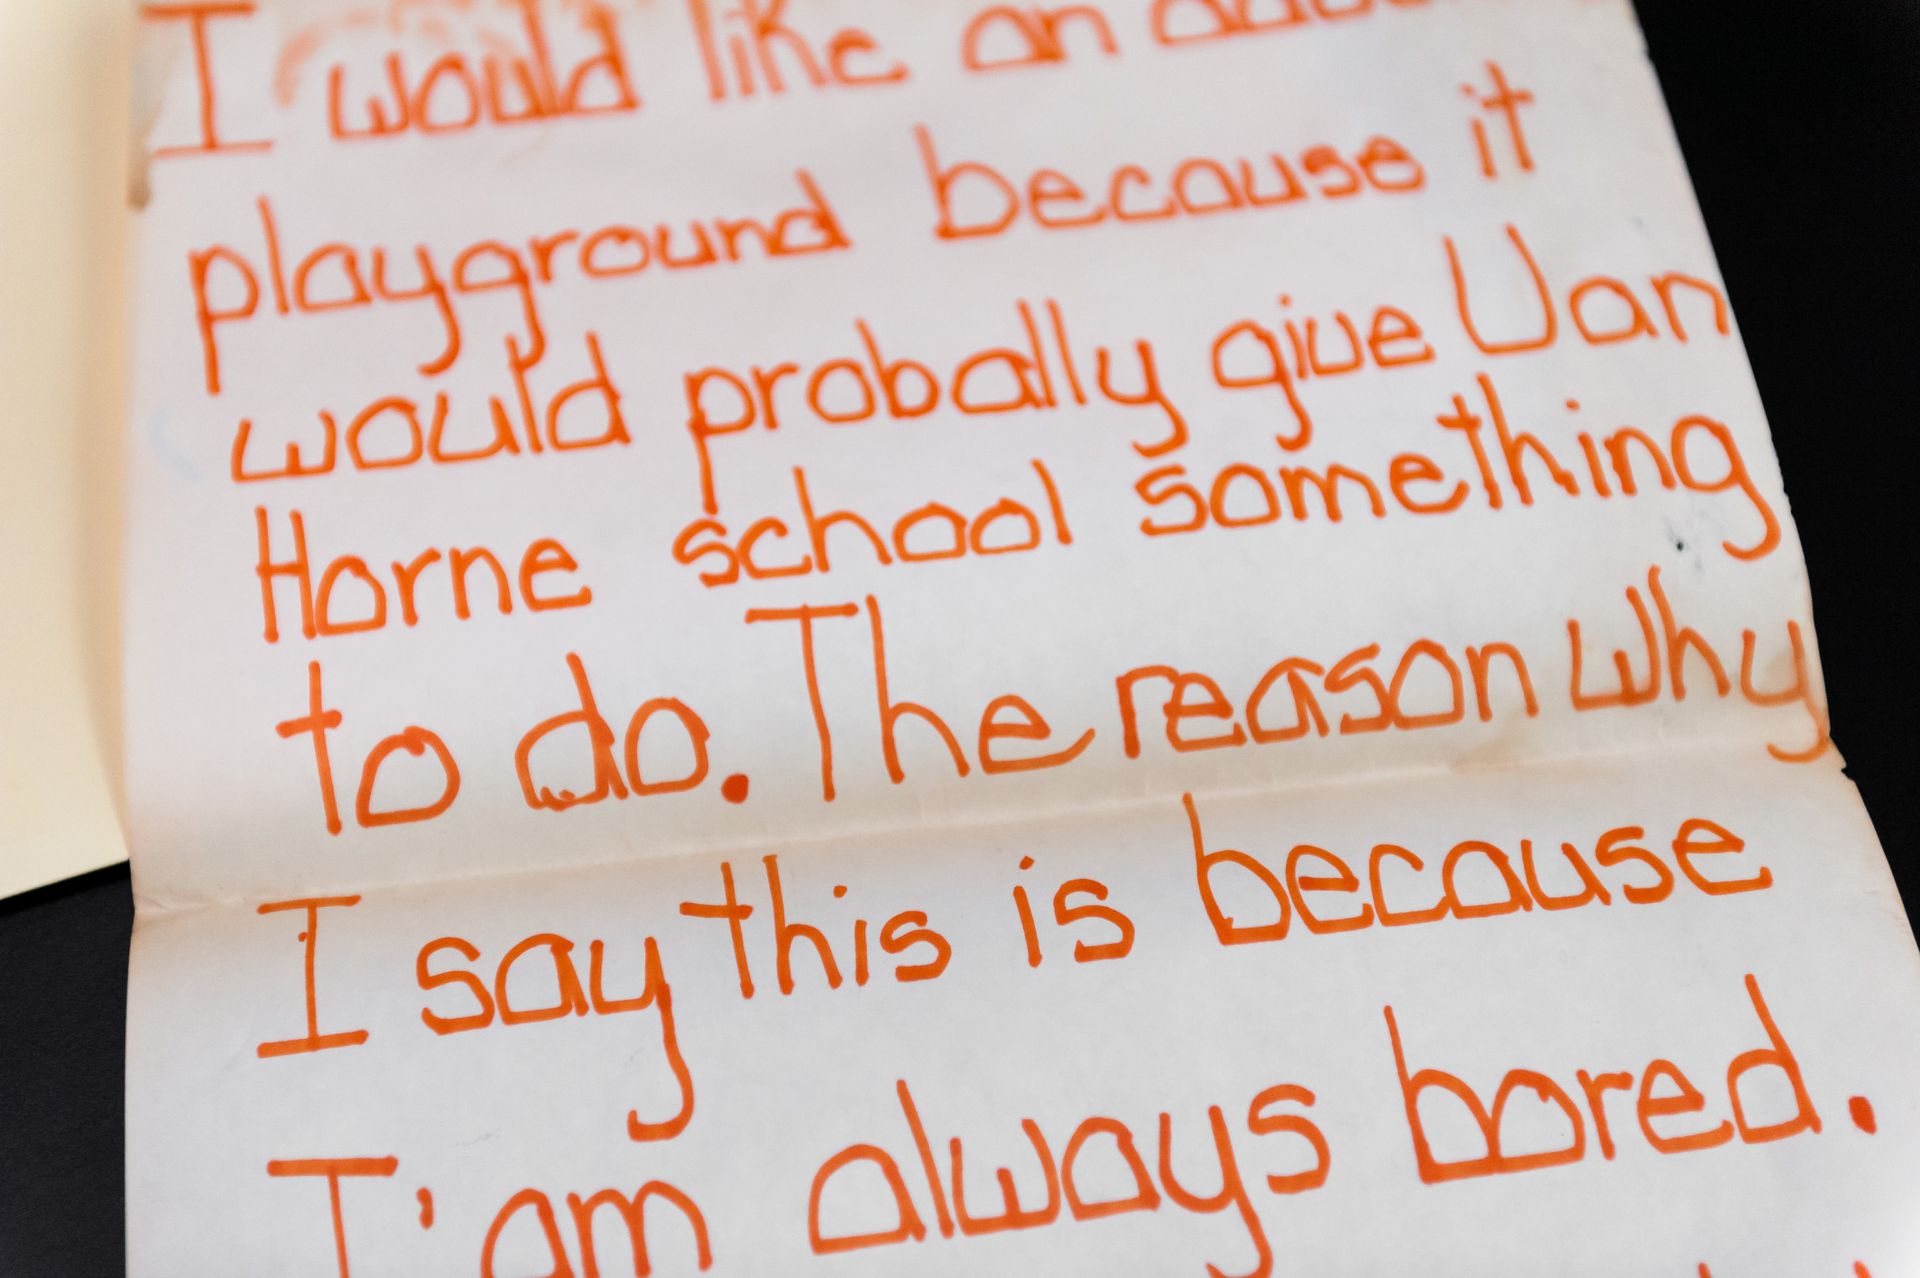 I would like an
playground because it
would probally give Van
Horne school something
to do. The reason why
I say this is because
I'am always bored.